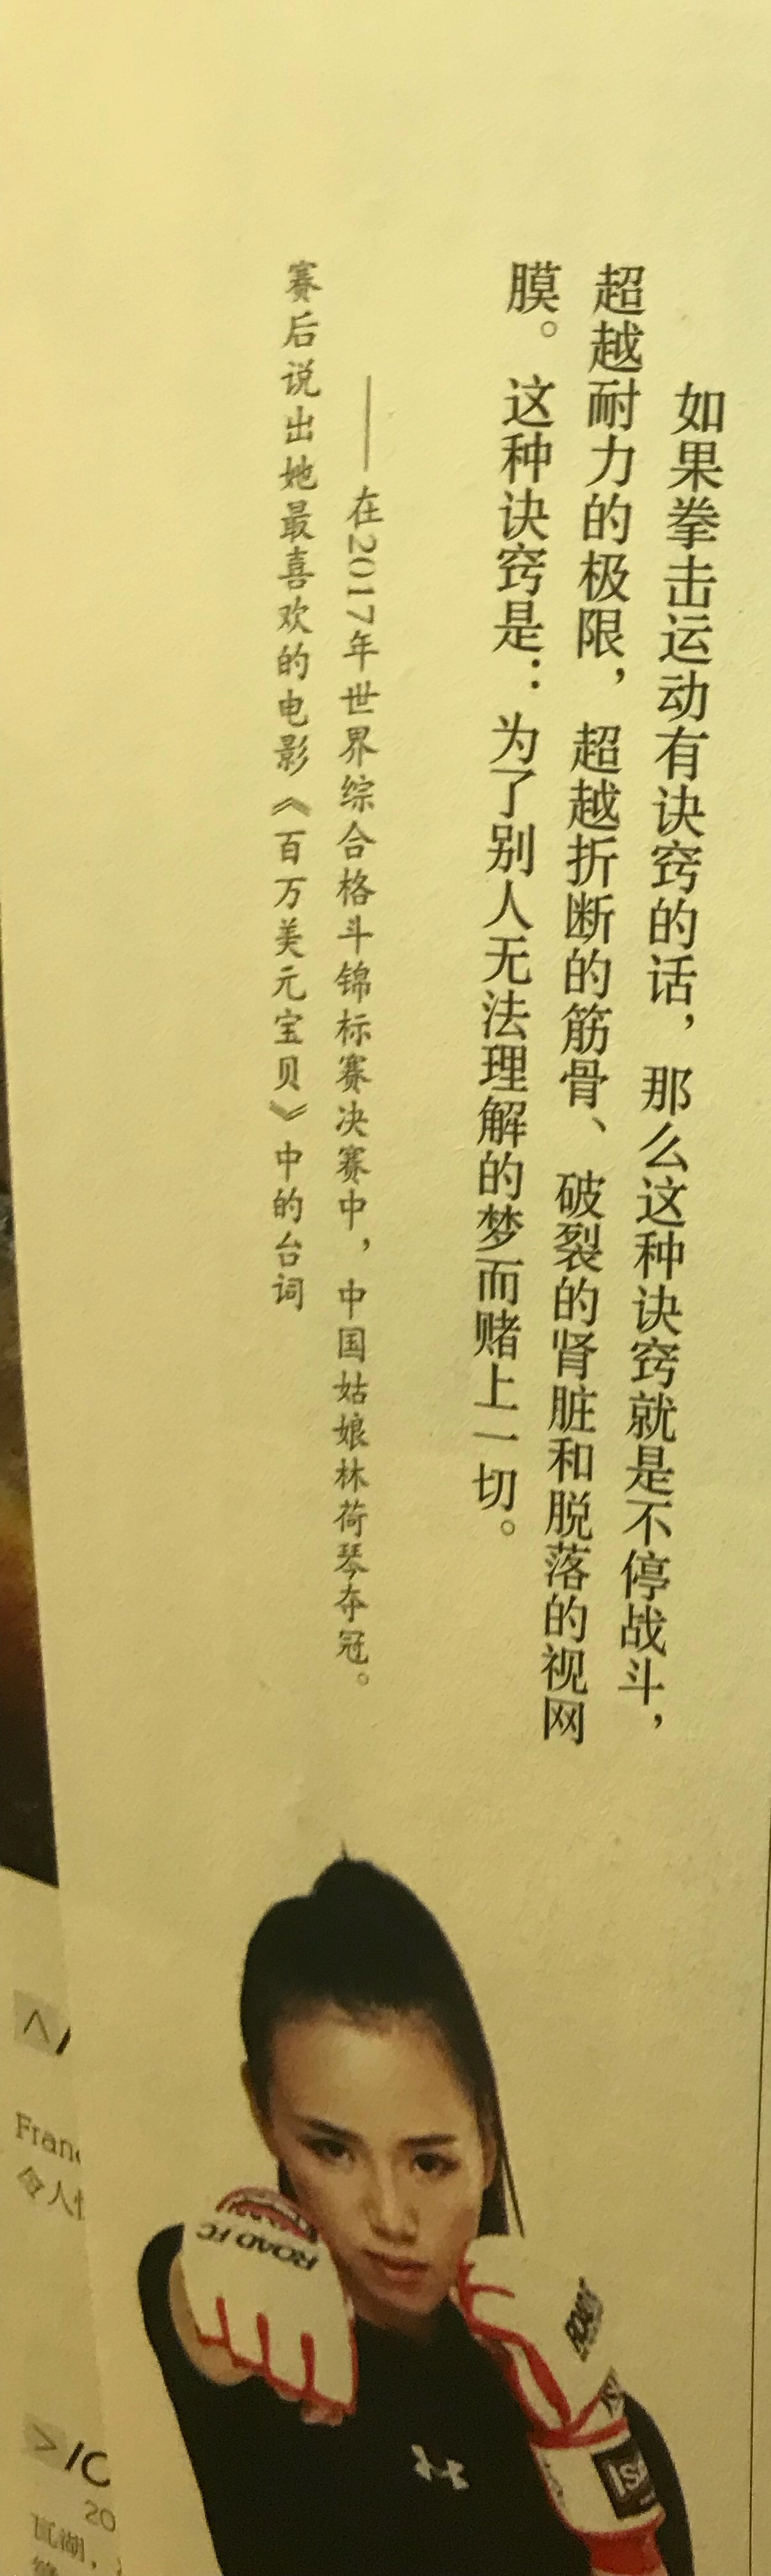 如果拳击运动有诀窍的话，那么这种诀窍就是不停战斗，
超越耐力的极限，超越折断的筋骨、破裂的肾脏和脱落的视网
膜。这种诀窍是：为了别人无法理解的梦而赌上一切。
——在2017年世界综合格斗锦标赛决赛中，中国姑娘林荷琴夺冠。
赛后说出她最喜欢的电影《百万美元宝贝》中的台词
ROAD FC
令人
20
瓦湖，